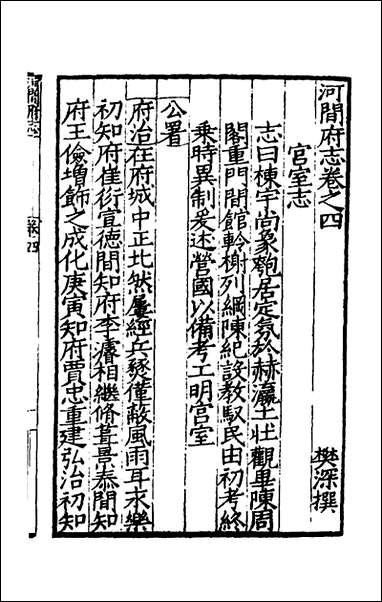 河間府志卷之四
樊深撰
宮室志
志曰棟宇尚象匏居定氛於赫瀛土壯觀畢陳周
閣重門間館軨榭列綱陳紀設教馭民由初考終
乗時異制爰述營國以備考工明宫室
公署
府治在府城中正北然屢經兵燹僅蔽風雨耳永樂
初知府崔衍宣德間知府李濬相繼修葺景泰間知
府王儉増飾之成化庚寅知府賈忠重建弘治初知
河間府志
卷四
一